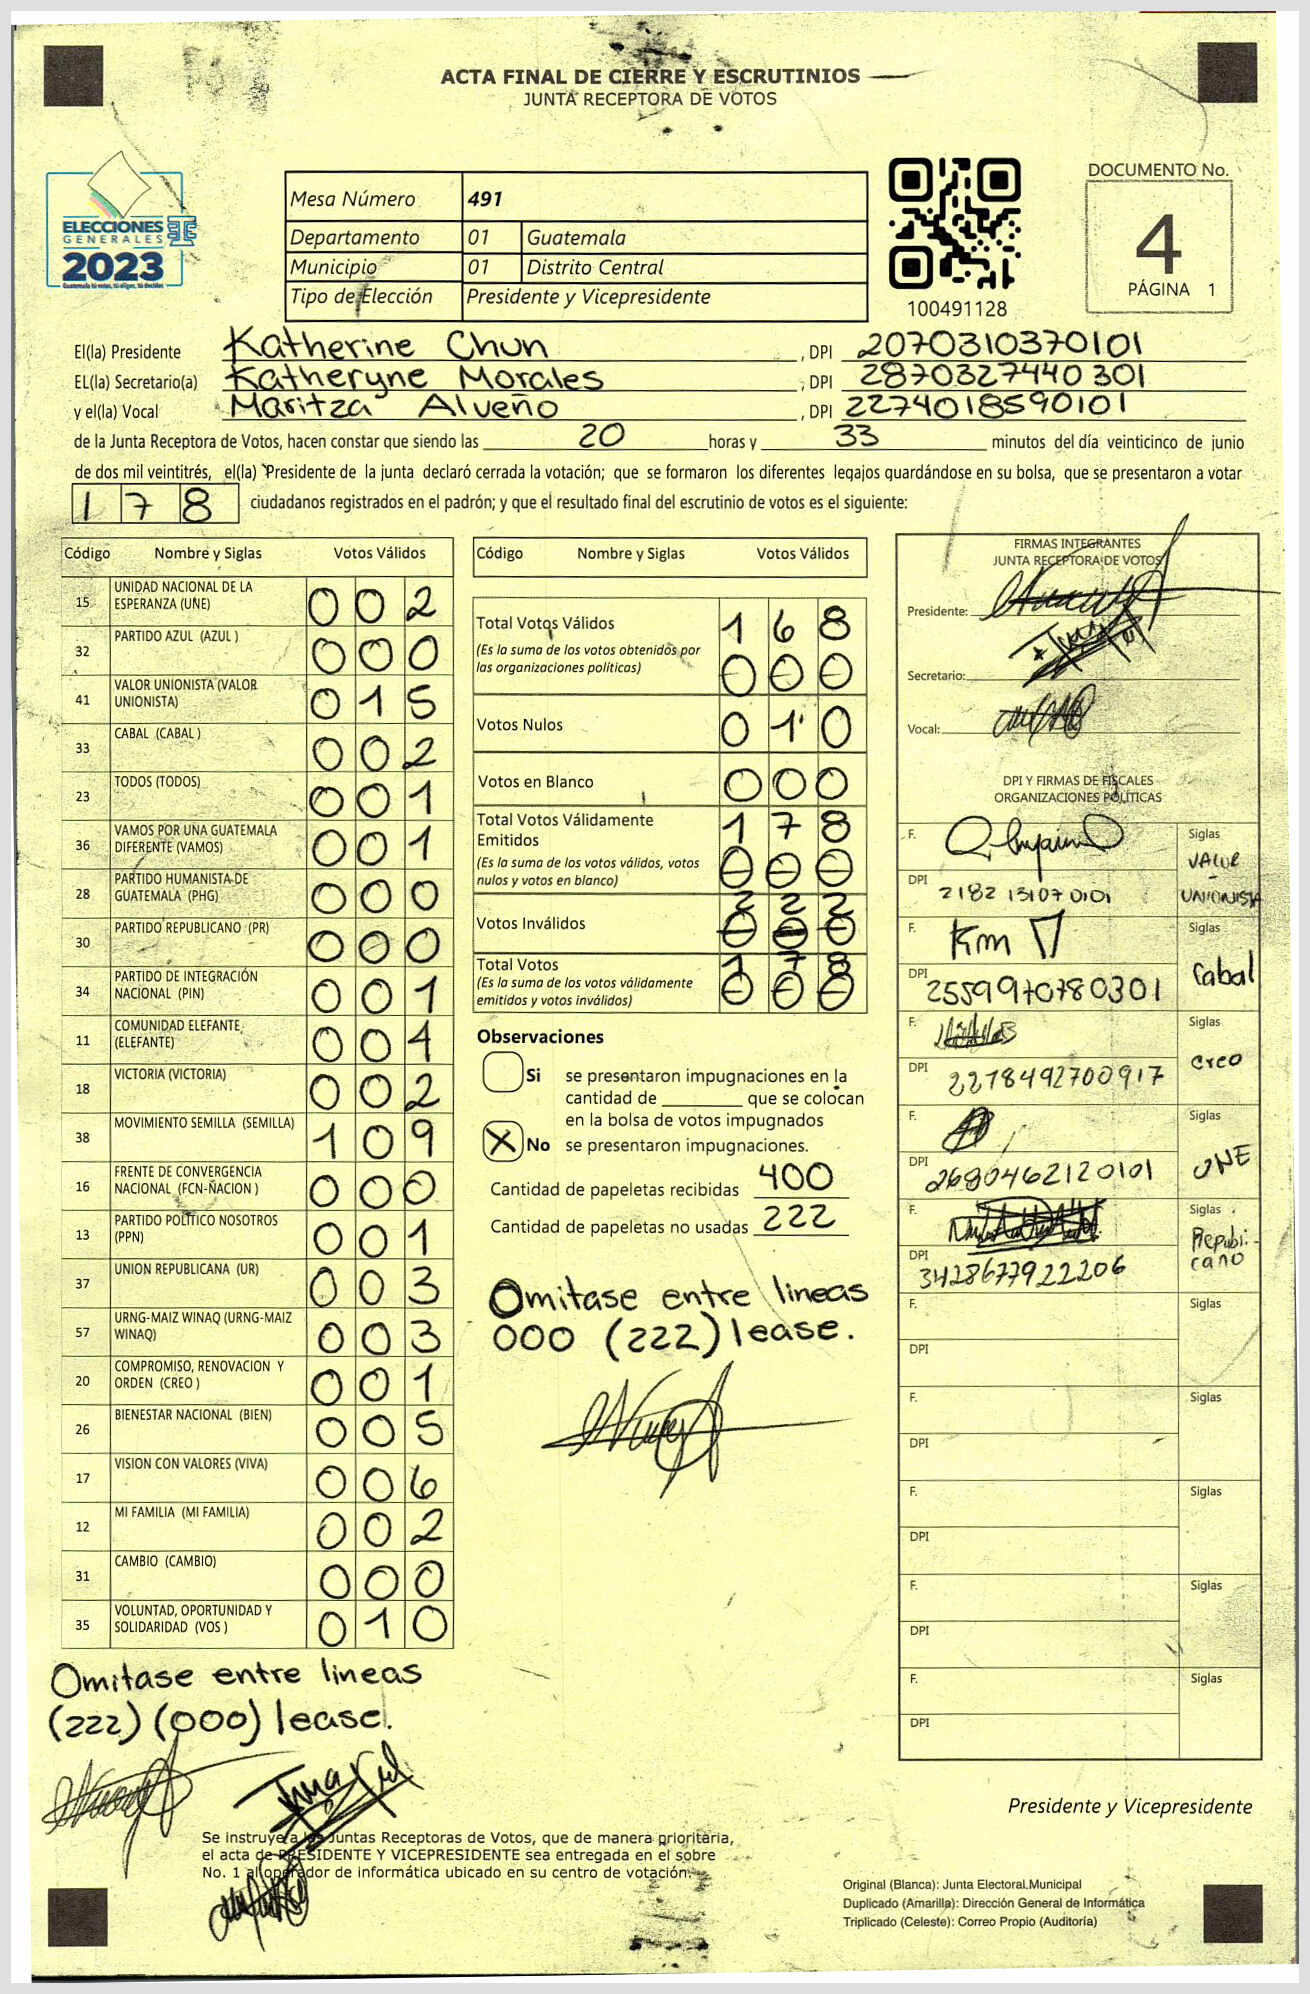 ACTA FINAL DE CIERRE Y ESCRUTINIOS
JUNTA RECEPTORA DE VOTOS
ELECCIONES
GENERALES
2023
Guatemala tú votas, tú eliges, tú decides
Mesa Número 491
Departamento 01 Guatemala
Municipio 01 Distrito Central
Tipo de Elección Presidente y Vicepresidente
100491128
DOCUMENTO No.
4
PÁGINA 1
El(la) Presidente Katherine Chun , DPI 2070310370101
EL(la) Secretario(a) Katheryne Morales , DPI 2870327440301
y el(la) Vocal Maritza Alveño , DPI 2274018590101
de la Junta Receptora de Votos, hacen constar que siendo las 20 horas y 33 minutos del día veinticinco de junio
de dos mil veintitrés, el(la) Presidente de la junta declaró cerrada la votación; que se formaron los diferentes legajos guardándose en su bolsa, que se presentaron a votar
178 ciudadanos registrados en el padrón; y que el resultado final del escrutinio de votos es el siguiente:
Código Nombre y Siglas Votos Válidos
15 UNIDAD NACIONAL DE LA ESPERANZA (UNE) 002
32 PARTIDO AZUL (AZUL ) 000
41 VALOR UNIONISTA (VALOR UNIONISTA) 015
33 CABAL (CABAL ) 002
23 TODOS (TODOS) 001
36 VAMOS POR UNA GUATEMALA DIFERENTE (VAMOS) 001
28 PARTIDO HUMANISTA DE GUATEMALA (PHG) 000
30 PARTIDO REPUBLICANO (PR) 000
34 PARTIDO DE INTEGRACIÓN NACIONAL (PIN) 001
11 COMUNIDAD ELEFANTE (ELEFANTE) 004
18 VICTORIA (VICTORIA) 002
38 MOVIMIENTO SEMILLA (SEMILLA) 109
16 FRENTE DE CONVERGENCIA NACIONAL (FCN-ÑACION ) 000
13 PARTIDO POLÍTICO NOSOTROS (PPN) 001
37 UNION REPUBLICANA (UR) 003
57 URNG-MAIZ WINAQ (URNG-MAIZ WINAQ) 003
20 COMPROMISO, RENOVACION Y ORDEN (CREO ) 001
26 BIENESTAR NACIONAL (BIEN) 005
17 VISION CON VALORES (VIVA) 006
12 MI FAMILIA (MI FAMILIA) 002
31 CAMBIO (CAMBIO) 000
35 VOLUNTAD, OPORTUNIDAD Y SOLIDARIDAD (VOS ) 010
Omitase entre lineas
(222) (000) lease.
Código Nombre y Siglas Votos Válidos
Total Votos Válidos 168
(Es la suma de los votos obtenidos por
las organizaciones políticas) 000
Votos Nulos 010
Votos en Blanco 000
Total Votos Válidamente
Emitidos 178
(Es la suma de los votos válidos, votos
nulos y votos en blanco) 000
222
Votos Inválidos 000
Total Votos 178
(Es la suma de los votos válidamente
emitidos y votos inválidos) 000
Observaciones
Si se presentaron impugnaciones en la
cantidad de ________ que se colocan
en la bolsa de votos impugnados
X No se presentaron impugnaciones.
Cantidad de papeletas recibidas 400
Cantidad de papeletas no usadas 222
Omitase entre lineas
000 (222) lease.
FIRMAS INTEGRANTES
JUNTA RECEPTORA DE VOTOS
Presidente:
Secretario:
Vocal:
DPI Y FIRMAS DE FISCALES
ORGANIZACIONES POLÍTICAS
F. Siglas
VALOR
-
UNIONISTA
DPI 2182 13107 0101
F. Km Siglas
Cabal
DPI 2559970780301
F. Siglas
Creo
DPI 2278492700917
F. Siglas
UNE
DPI 2680462120101
F. Siglas
Republi-
cano
DPI 3428677922206
F. Siglas
DPI
F. Siglas
DPI
F. Siglas
DPI
F. Siglas
DPI
F. Siglas
DPI
Presidente y Vicepresidente
Se instruye a las Juntas Receptoras de Votos, que de manera prioritaria,
el acta de PRESIDENTE Y VICEPRESIDENTE sea entregada en el sobre
No. 1 al operador de informática ubicado en su centro de votación.
Original (Blanca): Junta Electoral Municipal
Duplicado (Amarilla): Dirección General de Informática
Triplicado (Celeste): Correo Propio (Auditoría)